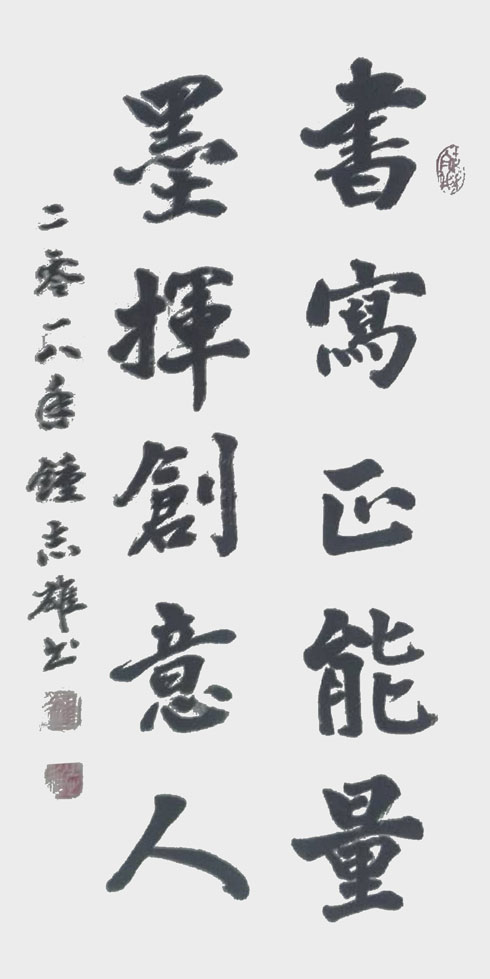 書寫正能量
墨揮創意人
二零一八年鍾志雄书